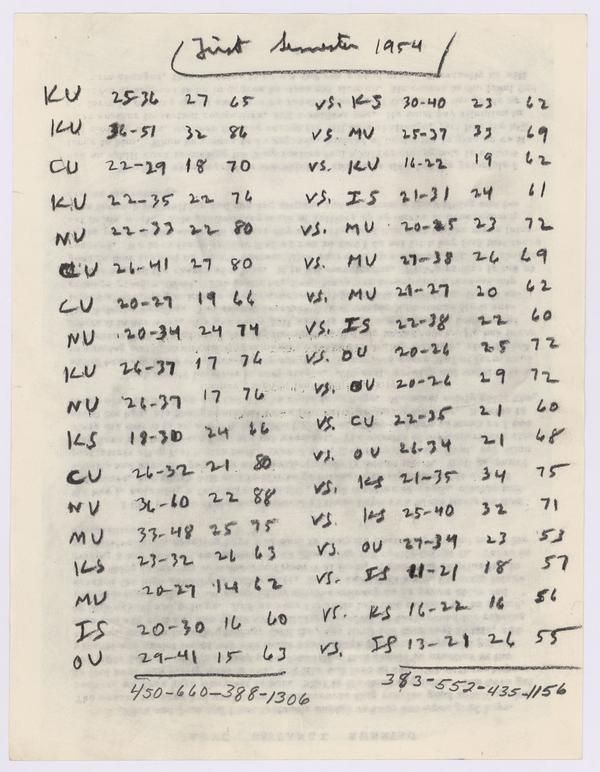 First Semester 1954
KU 25-36 27 65 vs. KS 30-40 23 62
KU 36-51 32 86 vs. MU 25-37 33 69
CU 22-29 18 70 vs. KU 16-22 19 62
KU 22-35 22 76 vs. IS 21-31 24 61
NU 22-33 22 80 vs. MU 20-25 23 72
CU 26-41 27 80 vs. MU 27-38 26 69
CU 20-27 19 66 vs. MU 21-27 20 62
NU 20-34 24 74 vs. IS 22-38 22 60
KU 26-37 17 76 vs. OU 20-26 25 72
NU 26-37 17 76 vs. OU 20-26 29 72
KS 18-30 24 66 vs. CU 22-35 21 60
CU 26-32 21 80 vs. OU 26-34 21 68
NU 36-60 22 88 vs. KS 21-35 34 75
MU 33-48 25 95 vs. KS 25-40 32 71
KS 23-32 26 63 vs. OU 27-34 23 53
MU 20-27 14 62 vs. IS 11-21 18 57
IS 20-30 16 60 vs. KS 16-22 16 56
OU 29-41 15 63 vs. IS 13-21 26 55
450-660-388-1306 383-552-435-1156